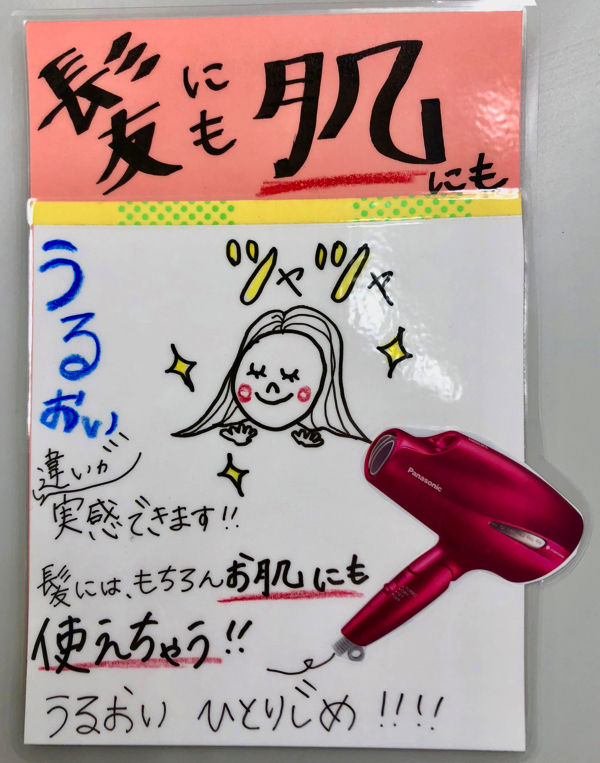 髪にも肌にも
ツヤツヤ
うるおい
違いが
実感できます!!
Panasonic
髪には、もちろんお肌にも
使えちゃう!!
うるおい ひとりじめ!!!!